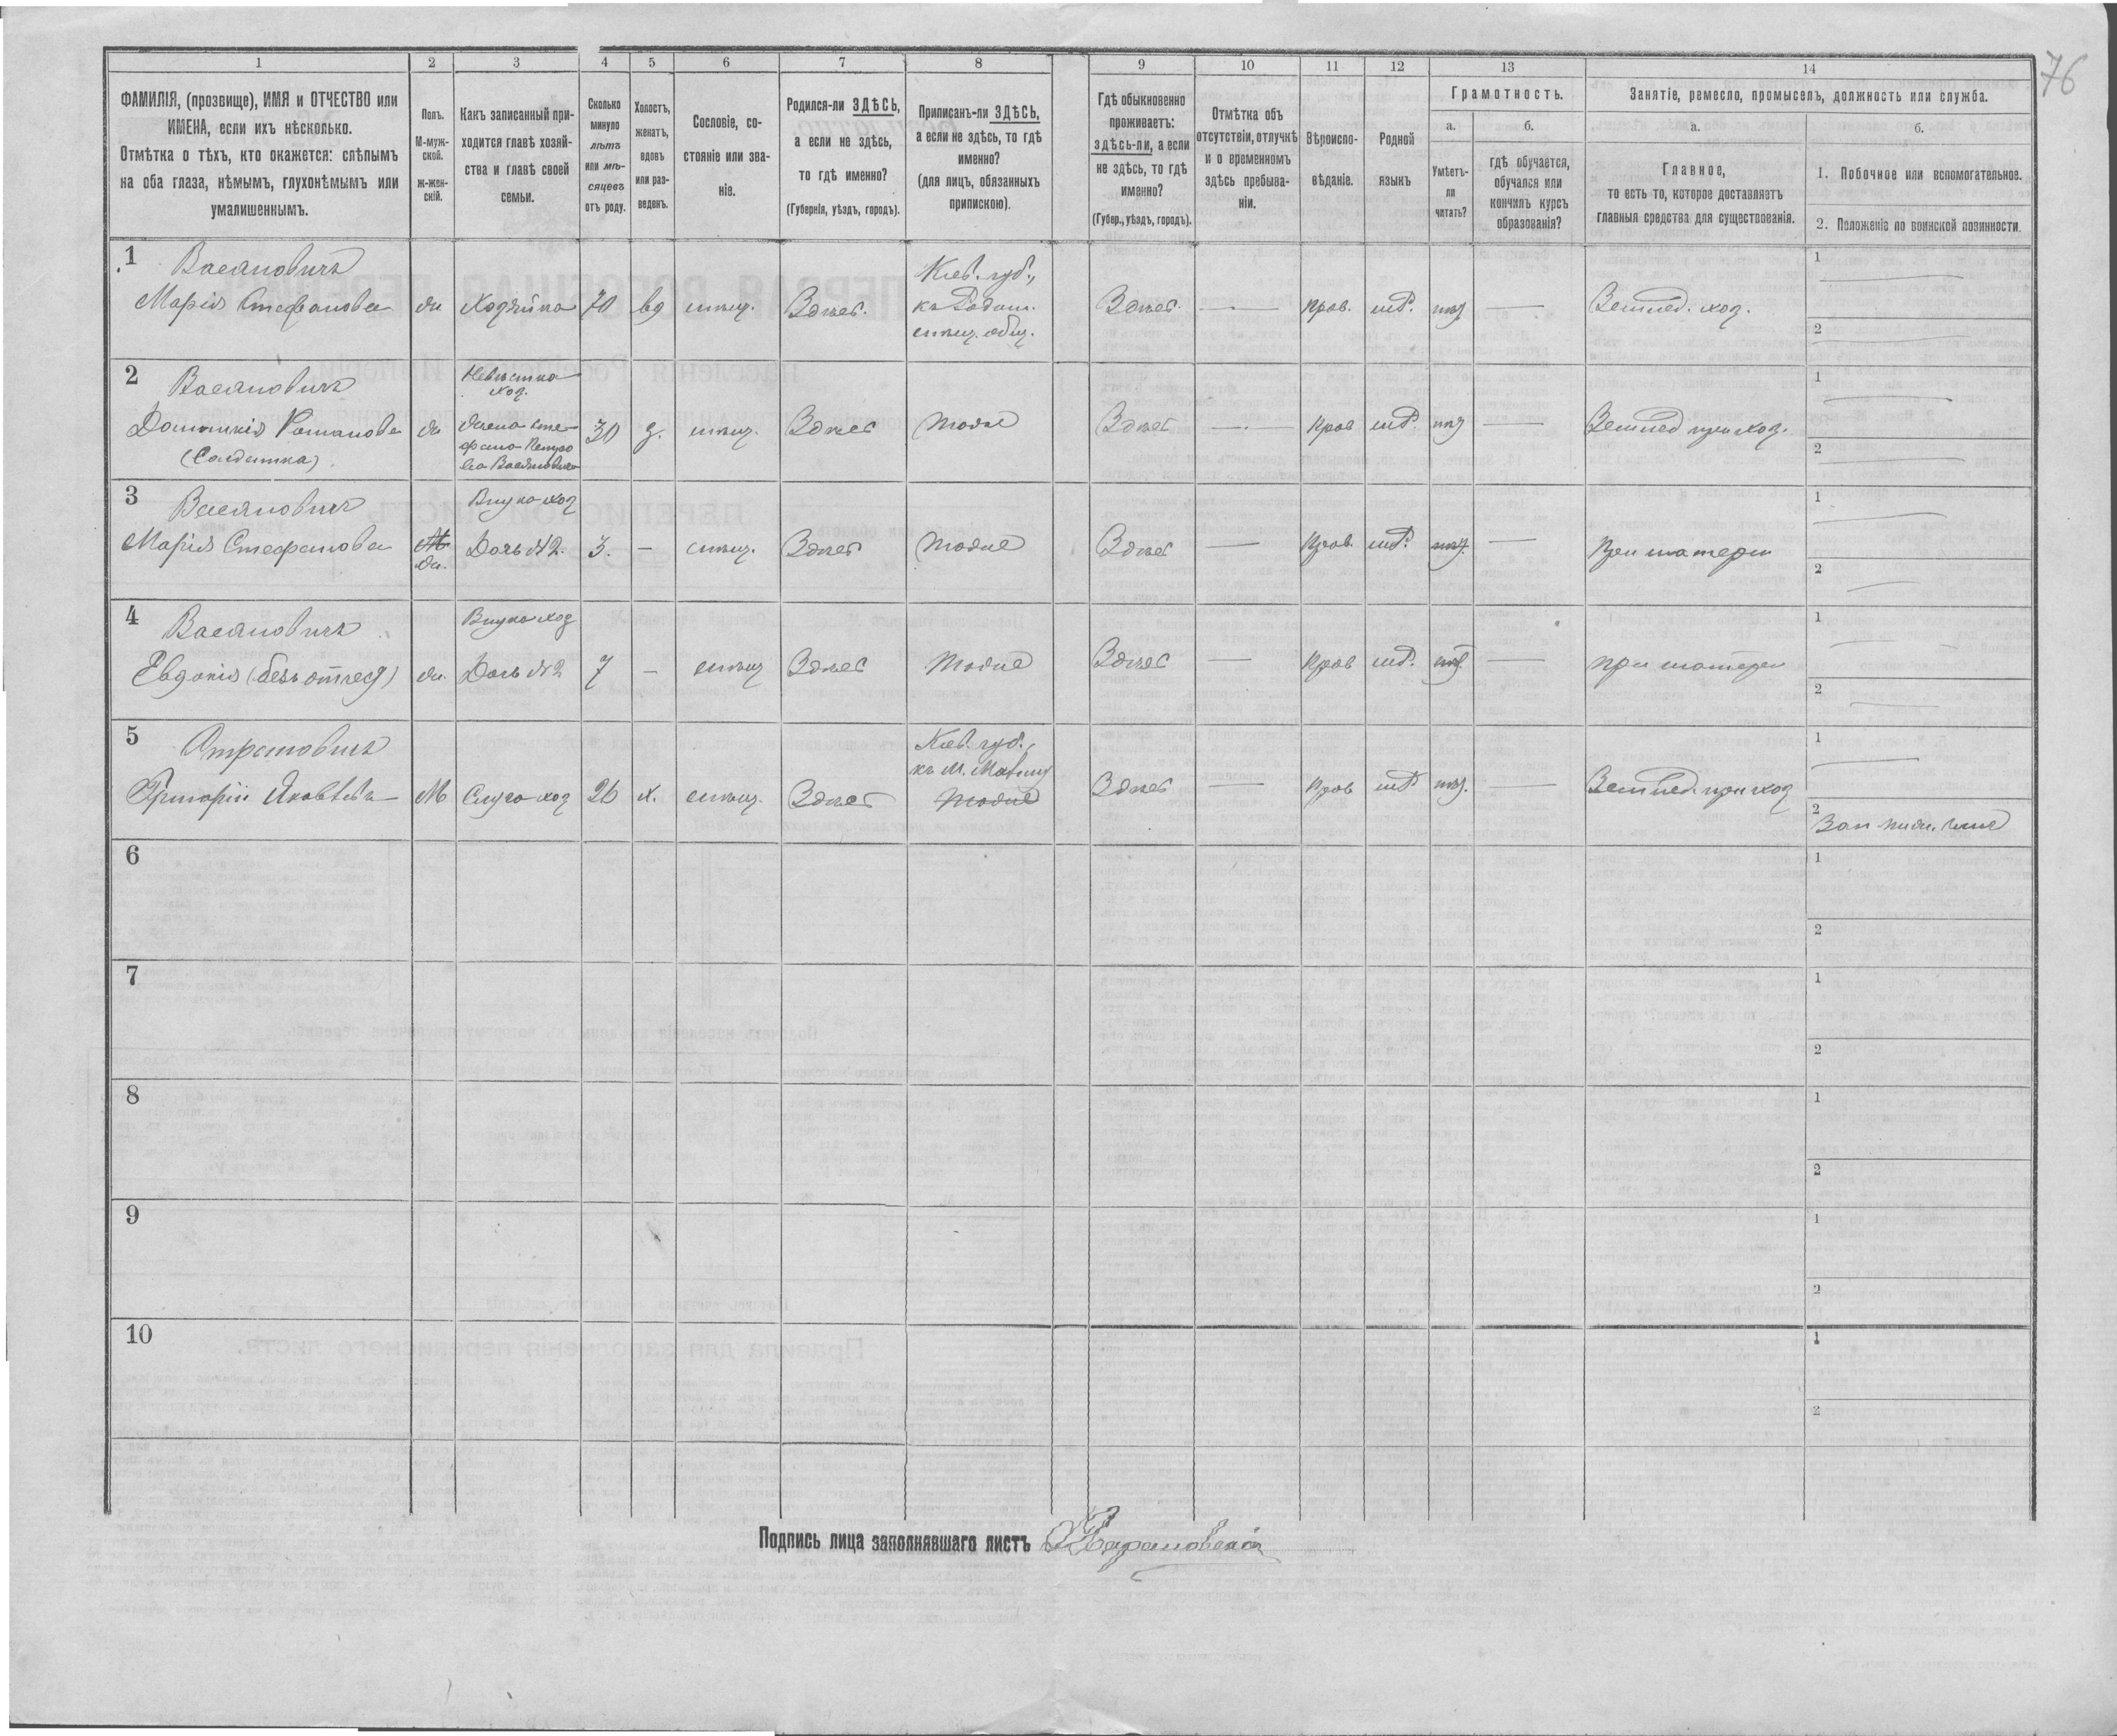 76
1
2
3
4
5
6
7
8
9
10
11
12
13
14
ФАМИЛІЯ, (прозвище), ИМЯ и ОТЧЕСТВО или
ИМЕНА, если ихъ нѣсколько.
Отмѣтка о тѣхъ, кто окажется: слѣпымъ
на оба глаза, нѣмымъ, глухонѣмымъ или
умалишеннымъ.
Полъ.
М-муж-
ской.
ж-жен-
скій.
Какъ записанный при-
ходится главѣ хозяй-
ства и главѣ своей
семьи.
Сколько
минуло
лѣтъ
или мѣ-
сяцевъ
отъ роду.
Холостъ,
женатъ,
вдовъ
или раз-
веденъ.
Сословіе, со-
стояніе или зва-
ніе.
Родился-ли ЗДѢСЬ,
а если не здѣсь,
то гдѣ именно?
(Губернія, уѣздъ, городъ).
Приписанъ-ли ЗДѢСЬ,
а если не здѣсь, то гдѣ
именно?
(для лицъ, обязанныхъ
припискою).
Гдѣ обыкновенно
проживаетъ:
здѣсь-ли, а если
не здѣсь, то гдѣ
именно?
(Губер., уѣздъ, городъ).
Отмѣтка объ
отсутствіи, отлучкѣ
и о временномъ
здѣсь пребыва-
ніи.
Вѣроиспо-
вѣданіе.
Родной
языкъ
Грамотность.
а.
Умѣетъ-
ли
читать?
б.
гдѣ обучается,
обучался или
кончилъ курсъ
образованія?
Занятіе, ремесло, промыселъ, должность или служба.
а.
Главное,
то есть то, которое доставляетъ
главныя средства для существованія.
б.
1. Побочное или вспомогательное.
2. Положеніе по воинской повинности.
1
Васяновичъ
Марія Стефанова
ж
Хозяйка
70
вд
Здѣсь.
Кіев. губ.,
Здѣсь.
прав.
Землед. хоз.
1
2
2
Васяновичъ
Домникія Романова
(Солдатка)
ж
Невѣстка
хоз.
жена Сте-
фана Петро
ва Васяновича
30
з.
Здѣсь
тоже
Здѣсь
прав
Землед при хоз.
1
2
3
Васяновичъ
Марія Стефанова
М
ж.
Внука хоз
Дочь №2.
3.
—
Здѣсь
тоже
Здѣсь
прав.
при матери
1
2
4
Васяновичъ
Евдокія (безъ отчест)
ж.
Внука хоз
Дочь №2
7
—
Здѣсь
тоже
Здѣсь
прав
при матери
1
2
5
Григорій Яковлевъ
М
Слуга хоз
26
х.
Здѣсь
Кіев. губ.,
къ М.
тоже
Здѣсь
прав
Землед. при хоз
1
2
6
1
2
7
1
2
8
1
2
9
1
2
10
1
2
Подпись лица заполнявшаго листъ